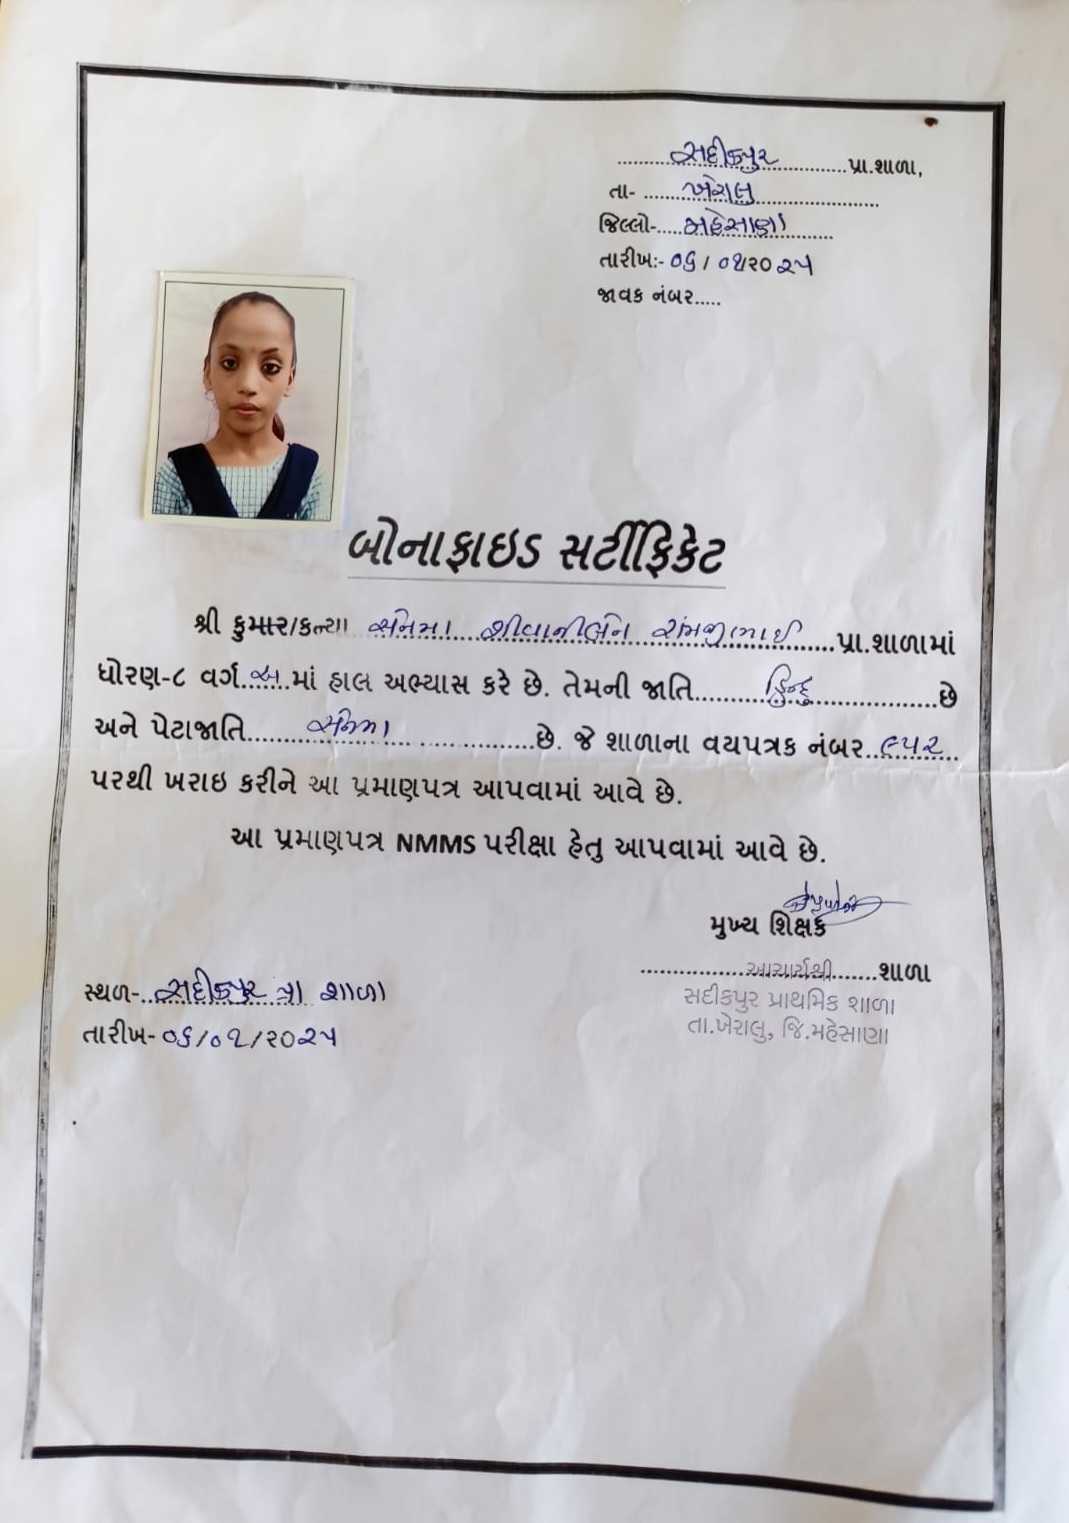 સદીકપુર પ્રા.શાળા,
તા- ખેરાલુ
જિલ્લો- મહેસાણા
તારીખ:- ૦૬/ ૦૧/૨૦૨૫
જાવક નંબર.....
બોનાફાઇડ સર્ટીફિકેટ
શ્રી કુમાર/કન્યા સેનમા શીવાનીબેન રામજીભાઈ પ્રા.શાળામાં
ધોરણ-૮ વર્ગ.અ.માં હાલ અભ્યાસ કરે છે. તેમની જાતિ હિન્દુ છે
અને પેટાજાતિ સેનમા છે. જે શાળાના વયપત્રક નંબર..૯૫૨
પરથી ખરાઇ કરીને આ પ્રમાણપત્ર આપવામાં આવે છે.
આ પ્રમાણપત્ર NMMS પરીક્ષા હેતુ આપવામાં આવે છે.
મુખ્ય શિક્ષક
આચાર્યશ્રી શાળા
સદીકપુર પ્રાથમિક શાળા
તા.ખેરાલુ, જિ.મહેસાણા
સ્થળ- સદીકપુર પ્રા શાળા
તારીખ- ૦૬/૦૧/૨૦૨૫